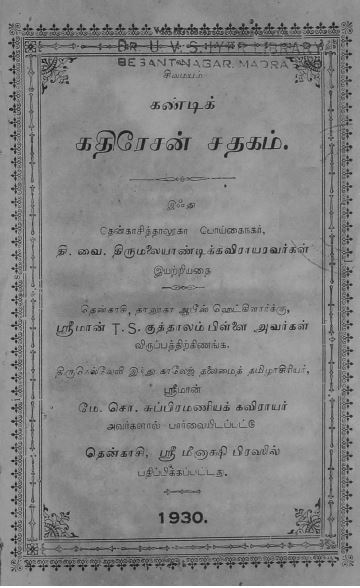 DR U. V. S. IYER LIBRARY
BESANT NAGAR, MADRA
சிவமயம்
கண்டிக்
கதிரேசன் சதகம்.
இஃது
தென்காசித்தாலூகா பொய்கைநகர்,
தி. வை. திருமலையாண்டிக்கவிராயரவர்கள்
இயற்றியதை
தென்காசி, தாலூகா ஆபீஸ் ஹெட்கிளார்க்கு,
ஸ்ரீமான் T. S. குத்தாலம்பிள்ளை அவர்கள்
விருப்பத்திற்கிணங்க.
திருநெல்வேலி இந்து காலேஜ் தலைமைத் தமிழாசிரியர்,
ஸ்ரீமான்
மே. சொ. சுப்பிரமணியக் கவிராயர்
அவர்களால் பார்வையிடப்பட்டு
தென்காசி, ஸ்ரீ மீனாக்ஷி பிரஸில்
பதிப்பிக்கப்பட்டது.
1930.